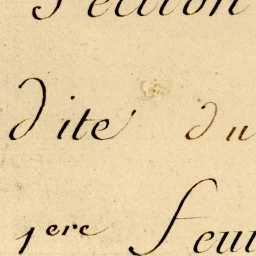 Section
dite du
1ere Feui